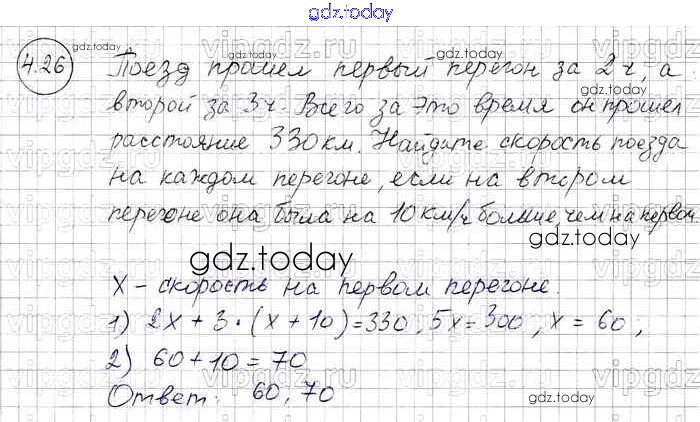 gdz.today
4.26
Поезд прошел первый перегон за 2 ч, а
второй за 3ч. Всего за это время он прошел
расстояние 330 км. Найдите скорость поезда
на каждом перегоне, если на втором
перегоне она была на 10 км/ч больше, чем на первом
gdz.today
X - скорость на первом перегоне.
1) 2x + 3 · (x + 10) = 330, 5x = 300, x = 60,
2) 60 + 10 = 70
Ответ: 60, 70
gdz.today
gdz.today
gdz.today
gdz.today
vipgdz.ru